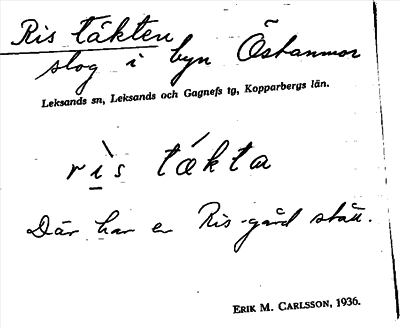 Ris täkten
slog i byn Östanmor
Leksands sn, Leksands och Gagnefs tg, Kopparbergs län.
rı̀s tǽkta
Där har en Ris-gård stått.
ERIK M. CARLSSON, 1936.